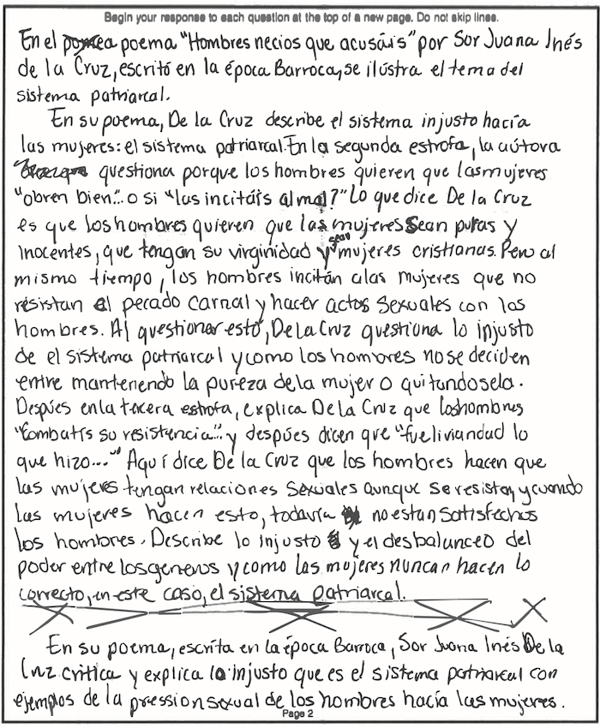 Begin your response to each question at the top of a new page. Do not skip lines.
En el poema "Hombres necios que acusáis" por Sor Juana Inés
de la Cruz, escritó en la época Barroca, se ilústra el tema del
sistema patriarcal.
En su poema, De la Cruz describe el sistema injusto hacía
las mujeres: el sistema patriarcal. En la segunda estrofa, la aútora
questiona porque los hombres quieren que las mujeres
"obren bien".. o si "las incitáis al mal?" Lo que dice De la Cruz
es que los hombres quieren que las mujeres sean puras y
inocentes, que tengan su virginidad y sean mujeres cristianas. Pero al
mismo tiempo, los hombres incitán a las mujeres que no
resistan el pecado carnal y hacer actos sexuales con los
hombres. Al questionar esto, De la Cruz questiona lo injusto
de el sistema patriarcal y como los hombres no se deciden
entre manteniendo la pureza de la mujer o quitandosela.
Despúes en la tercera estrofa, explica De la Cruz que los hombres
"Combatís su resistencia"... y despúes dicen que "fue liviandad lo
que hizo..." Aquí dice De la Cruz que los hombres hacen que
las mujeres tengan relaciones sexuales aunque se resistan, y cuando
las mujeres hacen esto, todavía no estan satisfechos
los hombres. Describe lo injusto y el desbalanceo del
poder entre los generos y como las mujeres nuncan hacen lo
correcto, en este caso, el sistema patriarcal.
En su poema, escrita en la época Barroca, Sor Juana Inés De la
Cruz critica y explica lo injusto que es el sistema patriarcal con
ejemplos de la pression sexual de los hombres hacía las mujeres.
Page 2